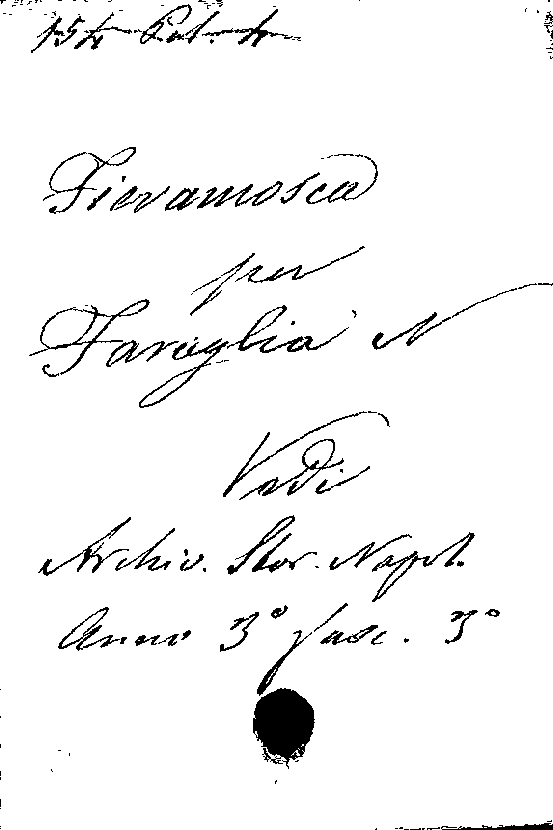 154 Pal. 4
Fieramosca
per
Faraglia N
Vedi
Archiv. Stor. Napol.
Anno 3º fasc. 3º